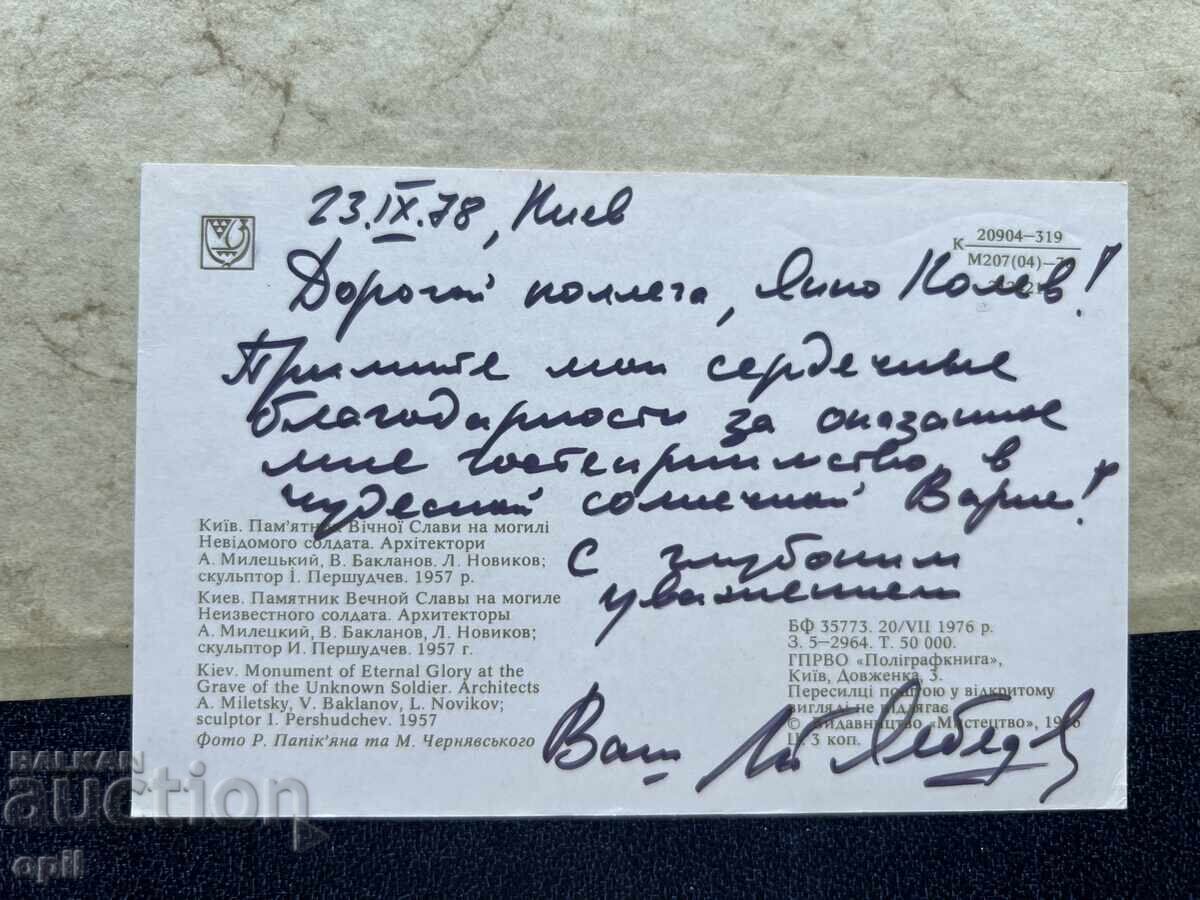 23.IX.78, Киев
К 20904–319
М207(04)–7
Дорогой коллега, Янко Колев!
Примите мои сердечные
благодарности за оказанное
мне гостеприимство в
чудесной солнечной Варне!
С глубоким
уважением
Ваш Лебедев
Київ. Пам'ятник Вічної Слави на могилі
Невідомого солдата. Архітектори
А. Милецький, В. Бакланов. Л. Новиков;
скульптор І. Першудчев. 1957 р.
Киев. Памятник Вечной Славы на могиле
Неизвестного солдата. Архитекторы
А. Милецкий, В. Бакланов, Л. Новиков;
скульптор И. Першудчев. 1957 г.
Kiev. Monument of Eternal Glory at the
Grave of the Unknown Soldier. Architects
A. Miletsky, V. Baklanov, L. Novikov;
sculptor I. Pershudchev. 1957
Фото Р. Папік'яна та М. Чернявського
БФ 35773. 20/VII 1976 р.
З. 5–2964. Т. 50 000.
ГПРВО «Поліграфкнига»,
Київ, Довженка, 3.
Пересилці поштою у відкритому
вигляді не підлягає
© Видавництво «Мистецтво», 1976
Ц. 3 коп.
BALKAN
auction
opil